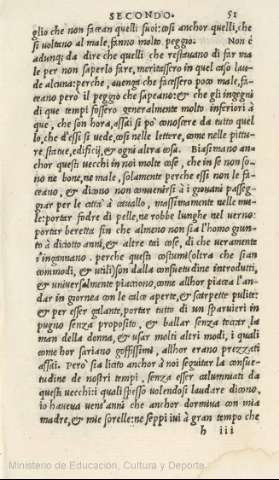 SECONDO. 51
glio che non faccan questi suoi: cosi anchor quelli, che
si voltano al male, fanno molto peggio. Non é
adunq; da dire che quelli che restauano di far ma
le per non saperlo fare, meritassero in quel caso lau-
de alcuna: perche, auenga che facessero poco male, fa-
ceano però il peggio che sapeano: & che gli ingegni
di que tempi fossero generalmente molto inferiori à
que, che son hora, assai si pò conoscere da tutto quel
lo, che d'essi si uede, cosi nelle lettere, come nelle pittu-
re statue, edificij, & ogni altra cosa. Biasimano an-
chor questi uecchi in noi molte cose, che in se non so-
no ne bone, ne male, solamente perche essi non le fa-
ceano, & dicono non conuenirsi à i giouani passeg-
giar per le città à cauallo, massimamente nelle mu-
le: portar fodre di pelle, ne robbe lunghe nel uerno:
portar beretta fin che almeno non sia l'homo giun-
to à diciotto anni, & altre tai cose, di che ueramente
s'ingannano. perche questi costumi (oltra che sian
commodi, & utili) son dalla consuetudine introdutti,
& uniuersalmente piaceno, come allhor piacea l'an-
dar in giornea con le calze aperte, & scarpette pulite:
& per esser galante, portar tutto dì un sparuieri in
pugno senza proposito, & ballar senza toccar la
man della donna, & usar molti altri modi, i quali
come hor sariano goffissimi, allhor erano prezzati
assai. Però sia licito anchor à noi seguitar la consue-
tudine de nostri tempi, senza esser calumniati da
questi uecchi: i quali spesso uolendosi laudare dicono,
io haueua uent'anni che anchor dormiua con mia
madre, & mie sorelle: ne seppi iui à gran tempo che
h iii
Ministerio de Educación, Cultura y Deporte